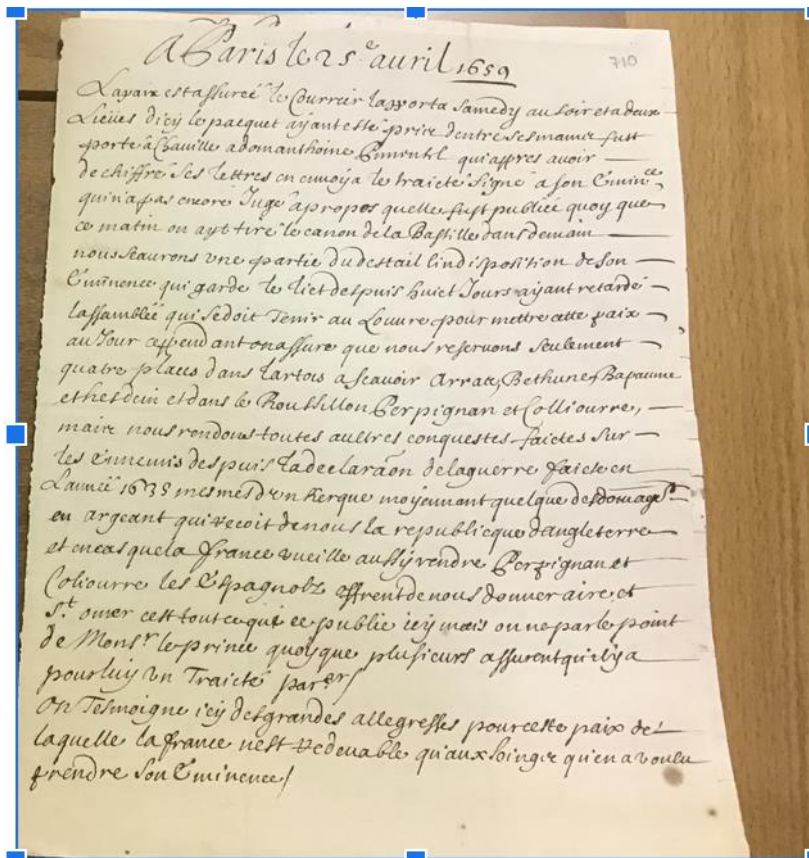 A Paris le 25e auril 1659
710
La paix est assureé le Courrier lapporta Samedy au soir et a deux
Lieües d'icy le pacquet ayant esté pris dentre ses mains fust
porté a Chaville a dom anthoine Pimentel qui appres avoir
dechiffré ses lettres en envoya le traicté signé a son Emince
qui n'a pas encoré Jugé a propos quelle fust publiéé quoy que
ce matin on ayt tiré le canon de la Bastille dans demain
nous scaurons une partie du destail lindisposition de son
Eminence qui garde le lict despuis huict Jours ayant retardé
lassambléé qui se doit Tenir au Louvre pour mettre cette paix
au Jour cependant on assure que nous reservons seulement
quatre places dans lartois a scavoir Arras, Bethune, Bapaume
et hesdein et dans le Roussillon Perpignan et Colliourre,
mais nous rendons toutes aultres conquestes faictes sur
les Ennemis despuis la declaraon de la guerre faicte en
Lanneé 1635 mesmes dunkerque moyennant quelque desdomagt
en argeant qui recoit de nous la republicque dangleterre
et en cas que la france vueille aussy rendre Perpignan et
Coliourre les Espagnolz offrent de nous donner aire et
St omer cest tout ce qui ce publie icy mais on ne parle point
de Monsr le prince quoy que plusieurs assurent quil y a
pour luy un Traicté parer
On Tesmoigne icy des grandes allegresses pour ceste paix de
laquelle la france nest redevable qu'aux soings qu'en a voulu
prendre son Eminence/